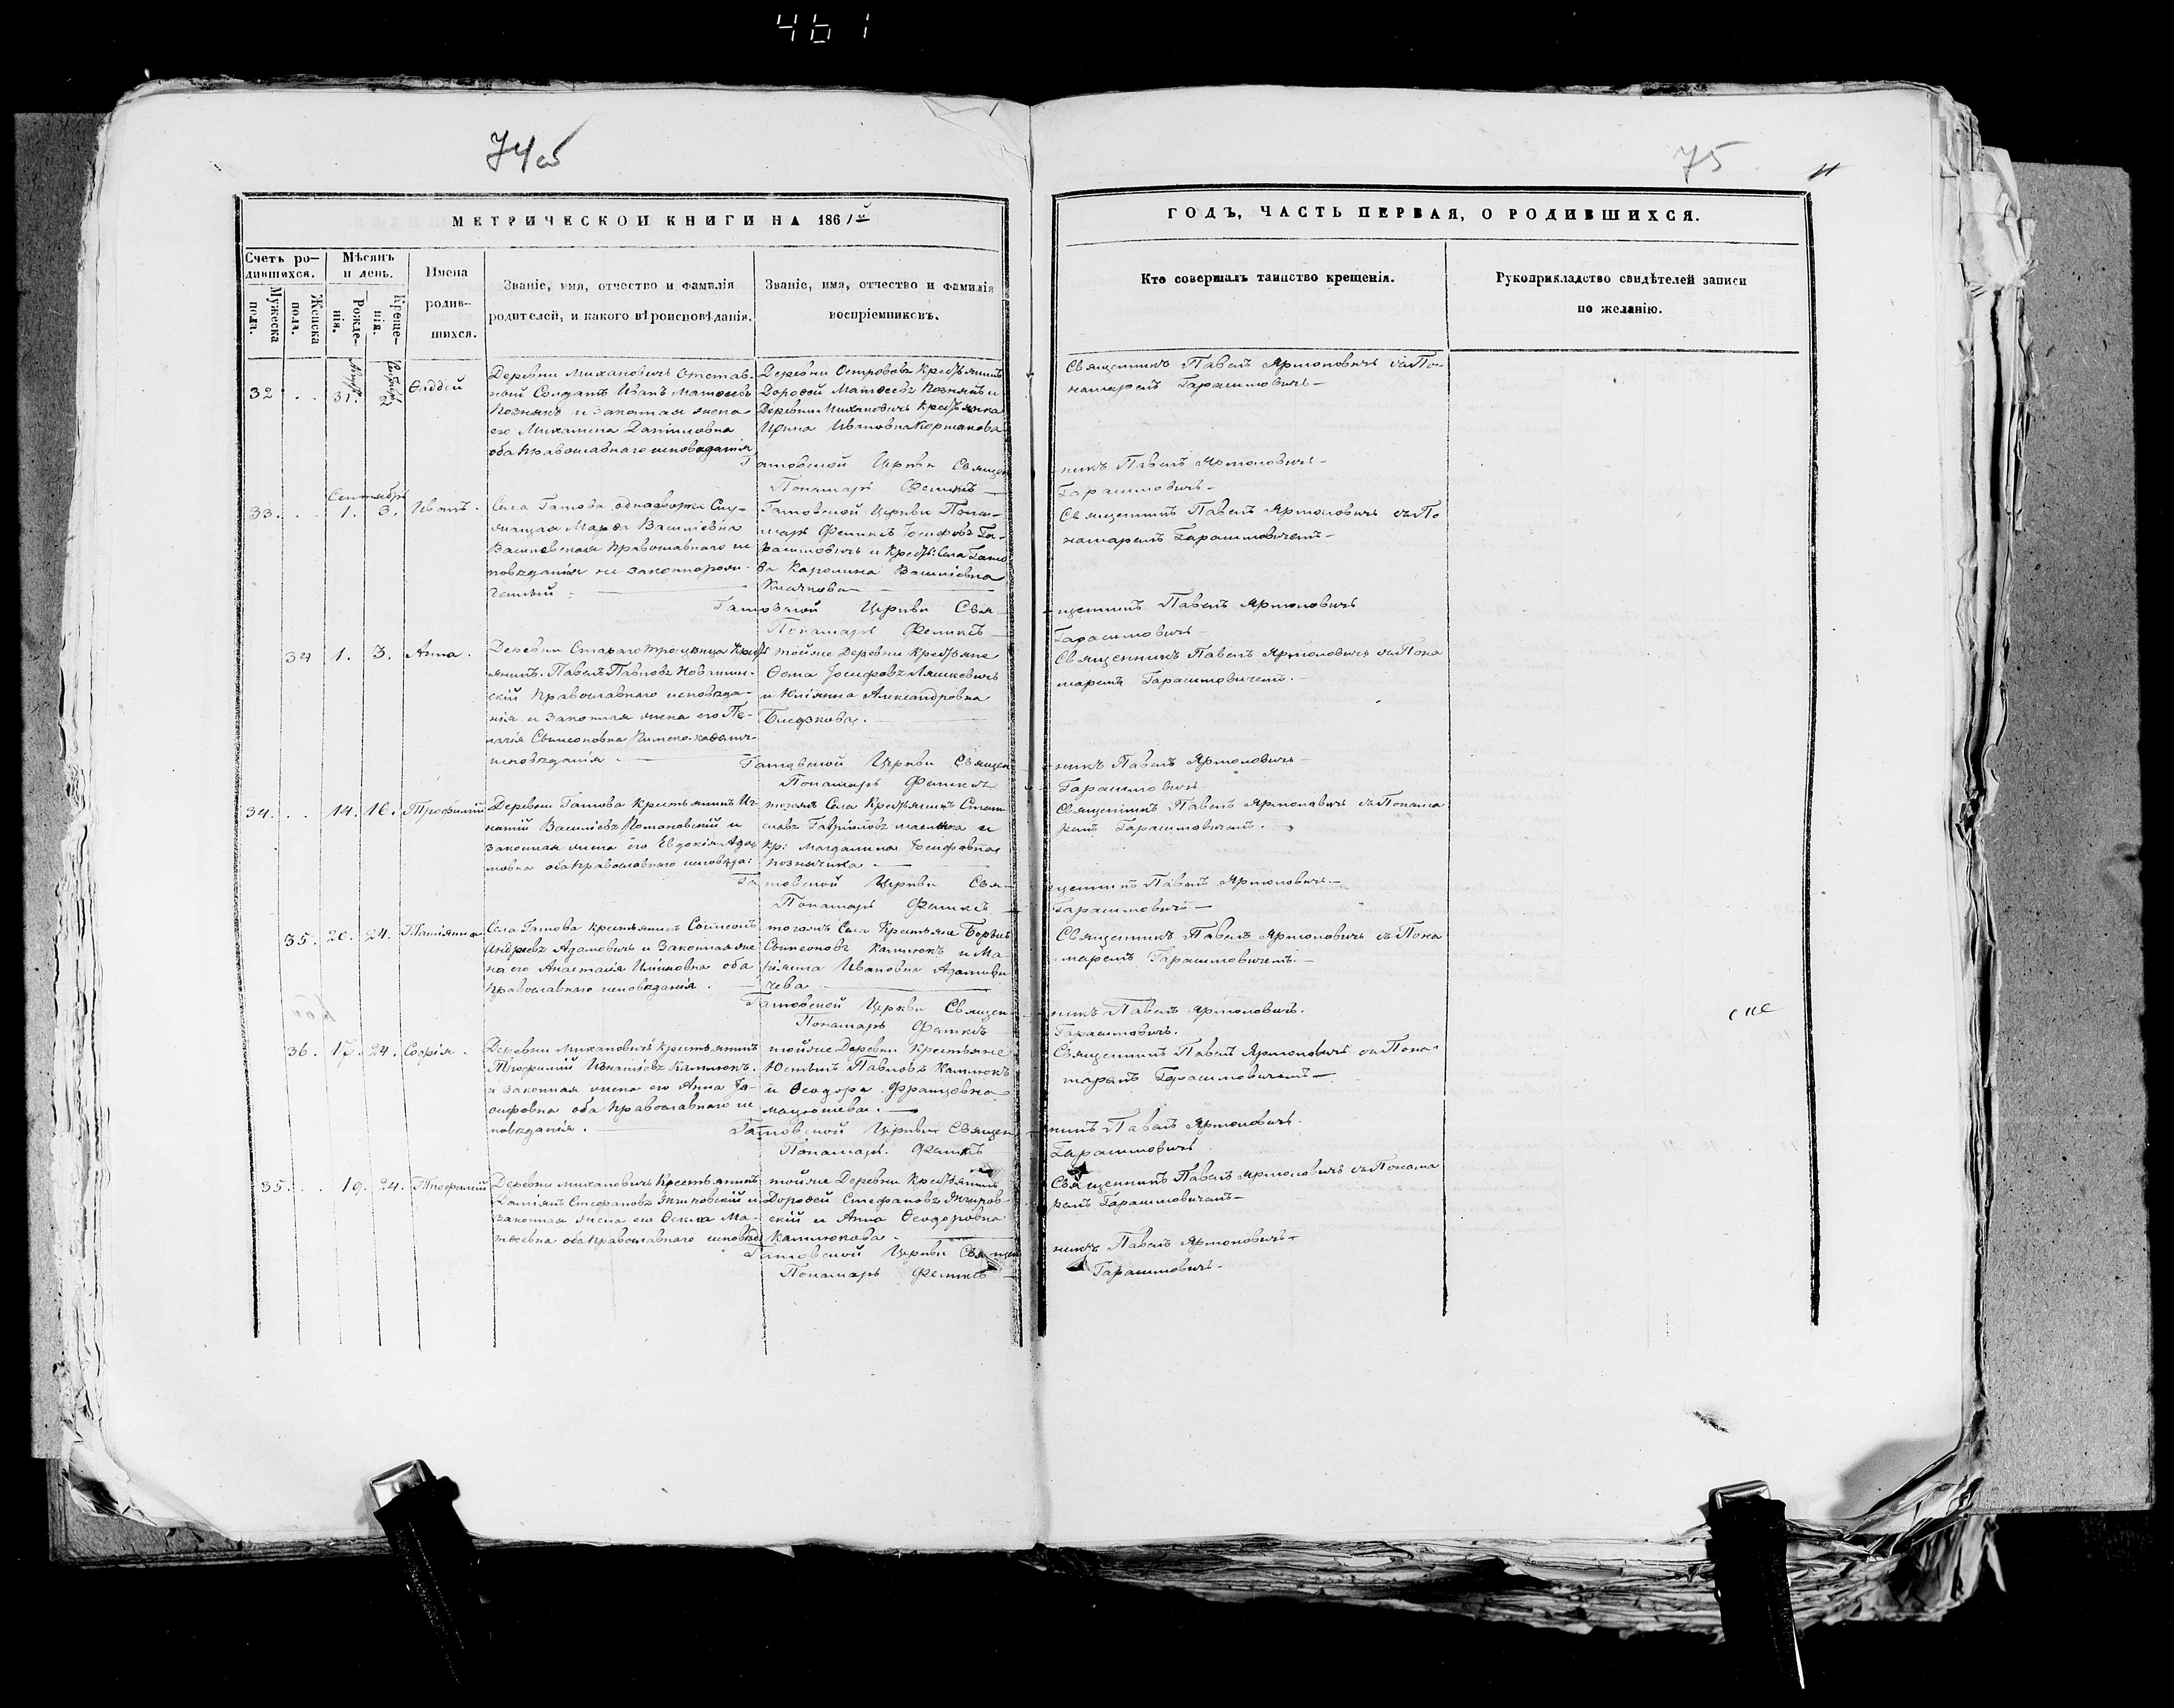 461
74об
75
МЕТРИЧЕСКОЙ КНИГИ НА 1861й
ГОДЪ, ЧАСТЬ ПЕРВАЯ, О РОДИВШИХСЯ.
Счетъ ро-
дившихся.
Мужеска пола.
Женска пола.
Мѣсяцъ
и день.
Рожде-
нія.
Креще-
нія.
Имена
родив-
шихся.
Званіе, имя, отчество и фамилія
родителей, и какого вѣроисповѣданія.
Званіе, имя, отчество и фамилія
воспріемниковъ.
Кто совершалъ таинство крещенія.
Рукоприкладство свидѣтелей записи
по желанію.
32
31.
2
Ѳаддей
Деревни Михановичъ Отстав-
ной Солдатъ Иванъ Матѳеевъ
Познякъ и законная жена
его Михалина Даниловна
оба православнаго исповѣданія
Деревни Островова Крестьянинъ
Дороѳей Матѳеевъ Познякъ и
Деревни Михановичъ Крестьянка
Ирина Ивановна Коршакова
Священникъ Павелъ Ярмоловичъ съ По-
намаремъ Гарашмовичъ
Гатовской Церкви Священ-
никъ Павелъ Ярмоловичъ
Понамарь Феликсъ
Гарашмовичъ
Сентябрь
33.
1.
3.
Иванъ.
Села Гатова однодворка Слу-
жащая Марѳа Василіевна
православнаго ис
повѣданія не законнорож-
денный
Гатовской Церкви Пона-
марь Феликсъ Іосифовъ Га-
рашмовичъ и Крест: Села Гато
ва Каролина Василіевна
Священникъ Павелъ Ярмоловичъ съ По
намаремъ Гарашмовичемъ
Гатовской Церкви Свя-
щенникъ Павелъ Ярмоловичъ
Понамарь Феликсъ
Гарашмовичъ
34
1.
3.
Анна.
Деревни Стараго Крест
янинъ Павелъ Павловъ
скій православнаго исповѣда-
нія и законная жена его Пе-
лагія Сѵмеоновна Римско-католич-
исповѣданія
тойже Деревни Крестьяне
Ѳома Іосифовъ Ляшкевичъ
и Александровна
Священникъ Павелъ Ярмоловичъ съ Пона
маремъ Гарашмовичемъ.
Гатовской Церкви Священ-
никъ Павелъ Ярмоловичъ
Понамарь Феликсъ
Гарашмовичъ
34.
14.
16.
Трофимій
Деревни Гатова крестьянинъ Иг-
натій Василіевъ и
законная жена его Евдокія Ада
мовна оба православнаго исповѣда:
тогожъ Села Крестьянинъ Стани
славъ Гавріиловъ и
кр: Магдалина Іосифовна
Священникъ Павелъ Ярмоловичъ съ Понама
ремъ Гарашмовичемъ.
Гатовской Церкви Свя-
щенникъ Павелъ Ярмоловичъ
Понамарь Феликсъ
Гарашмовичъ
35.
20.
24.
Татіянна
Села Гатова крестьянинъ Сѵмеонъ
Андреевъ Адамовичъ и законная же
на его Анастасія оба
православнаго исповѣданія.
тогожъ Села Крестьяне
Сѵмеоновъ Камлюкъ и Ма-
ріянна Ивановна Адамови
чева
Священникъ Павелъ Ярмоловичъ съ Пона
маремъ Гарашмовичемъ.
Гатовской Церкви Священ-
никъ Павелъ Ярмоловичъ.
Понамарь Феликсъ
Гарашмовичъ.
36.
17.
24.
Софія.
Деревни Михановичъ крестьянинъ
Трофимій Игнатіевъ Камлюкъ.
и законная жена его Анна Іо-
сифовна оба православнаго ис
повѣданія.
тойже Деревни Крестьяне
Юстинъ Павловъ Камлюкъ
и Ѳеодора Францовна
Священникъ Павелъ Ярмоловичъ съ Пона-
маремъ Гарашмовичемъ
Гатовской Церкви Священ
никъ Павелъ Ярмоловичъ.
Понамарь. Феликсъ
Гарашмовичъ
35.
19.
24.
Трофимій
Деревни Михановичъ Крестьянинъ
Даміянъ Стефановъ и
законная жена его Ѳекла Ма-
тѳеевна оба православнаго исповѣд
тойже Деревни Крестьянинъ
Дороѳей Стефановъ
скій и Анна Ѳеодоровна
Камлюкова
Священникъ Павелъ Ярмоловичъ съ Понама
ремъ Гарашмовичемъ
Гатовской Церкви Священ
никъ Павелъ Ярмоловичъ
Понамарь Феликсъ
Гарашмовичъ.